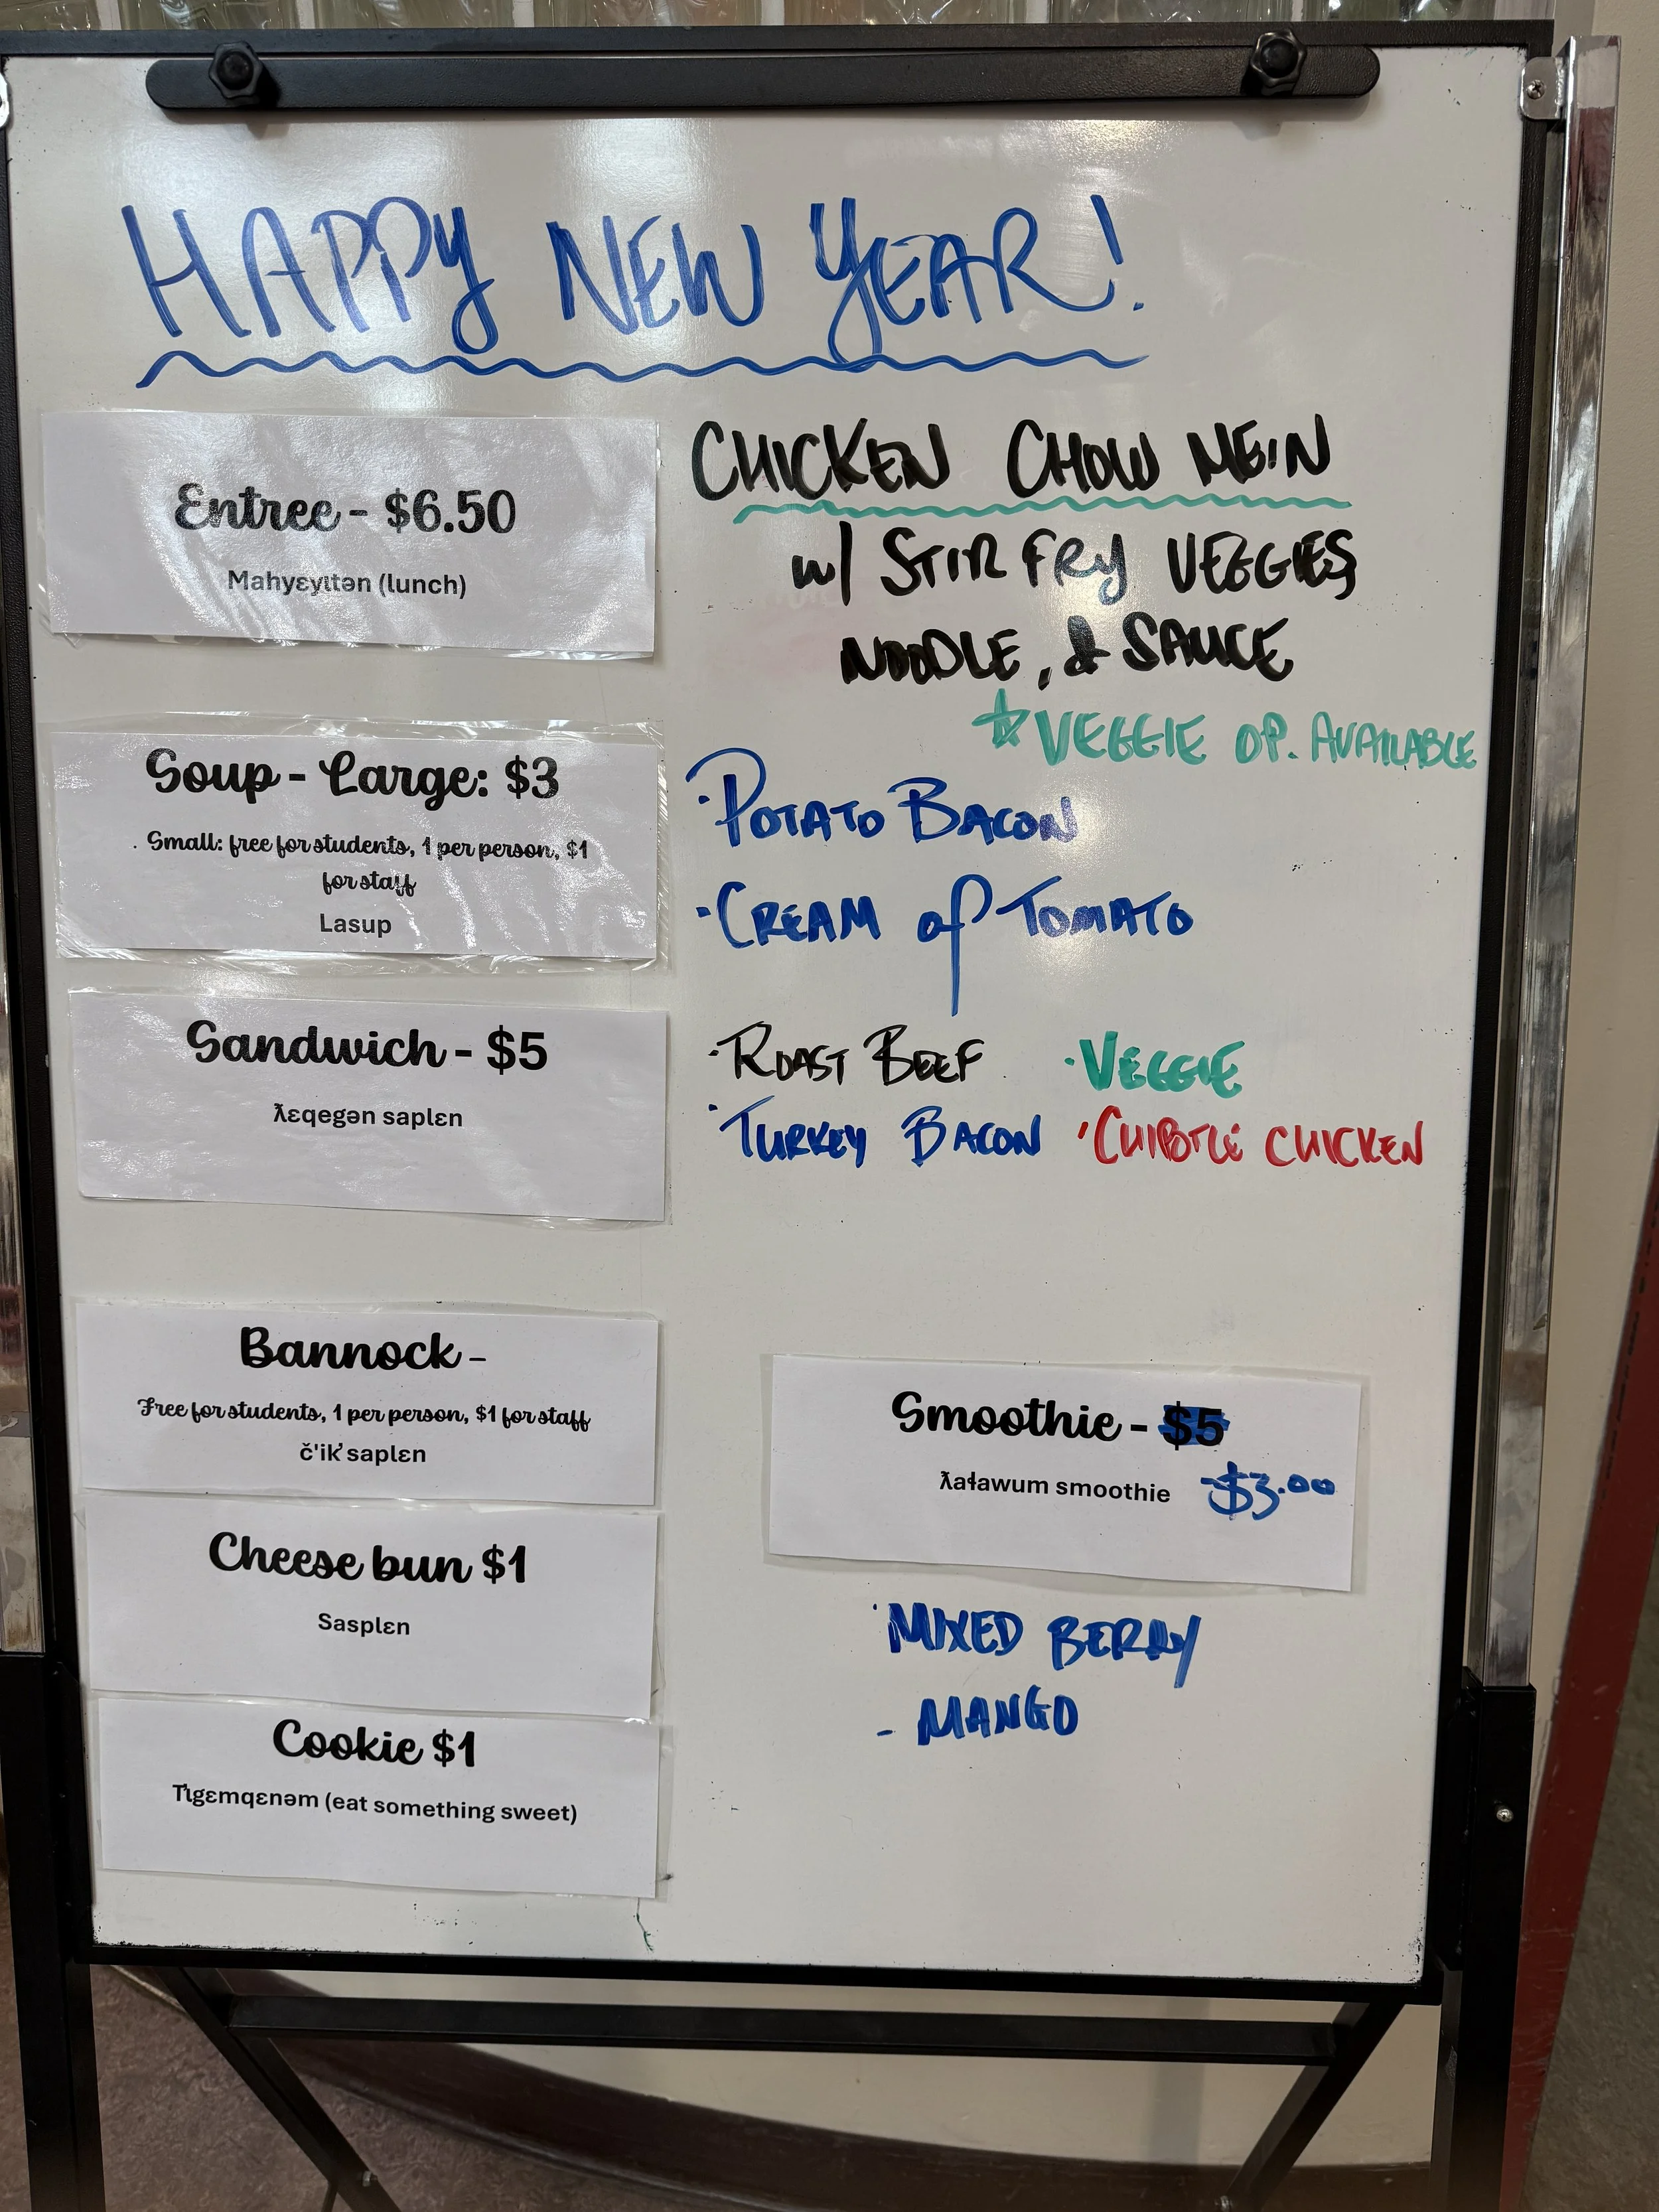 HAPPY NEW YEAR!
Entree - $6.50
Mahyɛyɩtən (lunch)
CHICKEN CHOW MEIN
w/ STIR FRY VEGGIES,
NOODLE, & SAUCE
☆ VEGGIE OP. AVAILABLE
Soup - Large: $3
. Small: free for students, 1 per person, $1
for staff
Lasup
· POTATO BACON
· CREAM of TOMATO
Sandwich - $5
ƛɛqegən saplɛn
· ROAST BEEF · VEGGIE
· TURKEY BACON · CHIPOTLE CHICKEN
Bannock -
Free for students, 1 per person, $1 for staff
č'ik̓ saplɛn
Smoothie - $5
ƛaɬawum smoothie $3.00
· MIXED BERRY
- MANGO
Cheese bun $1
Sasplɛn
Cookie $1
T̓ɩgɛmqɛnəm (eat something sweet)